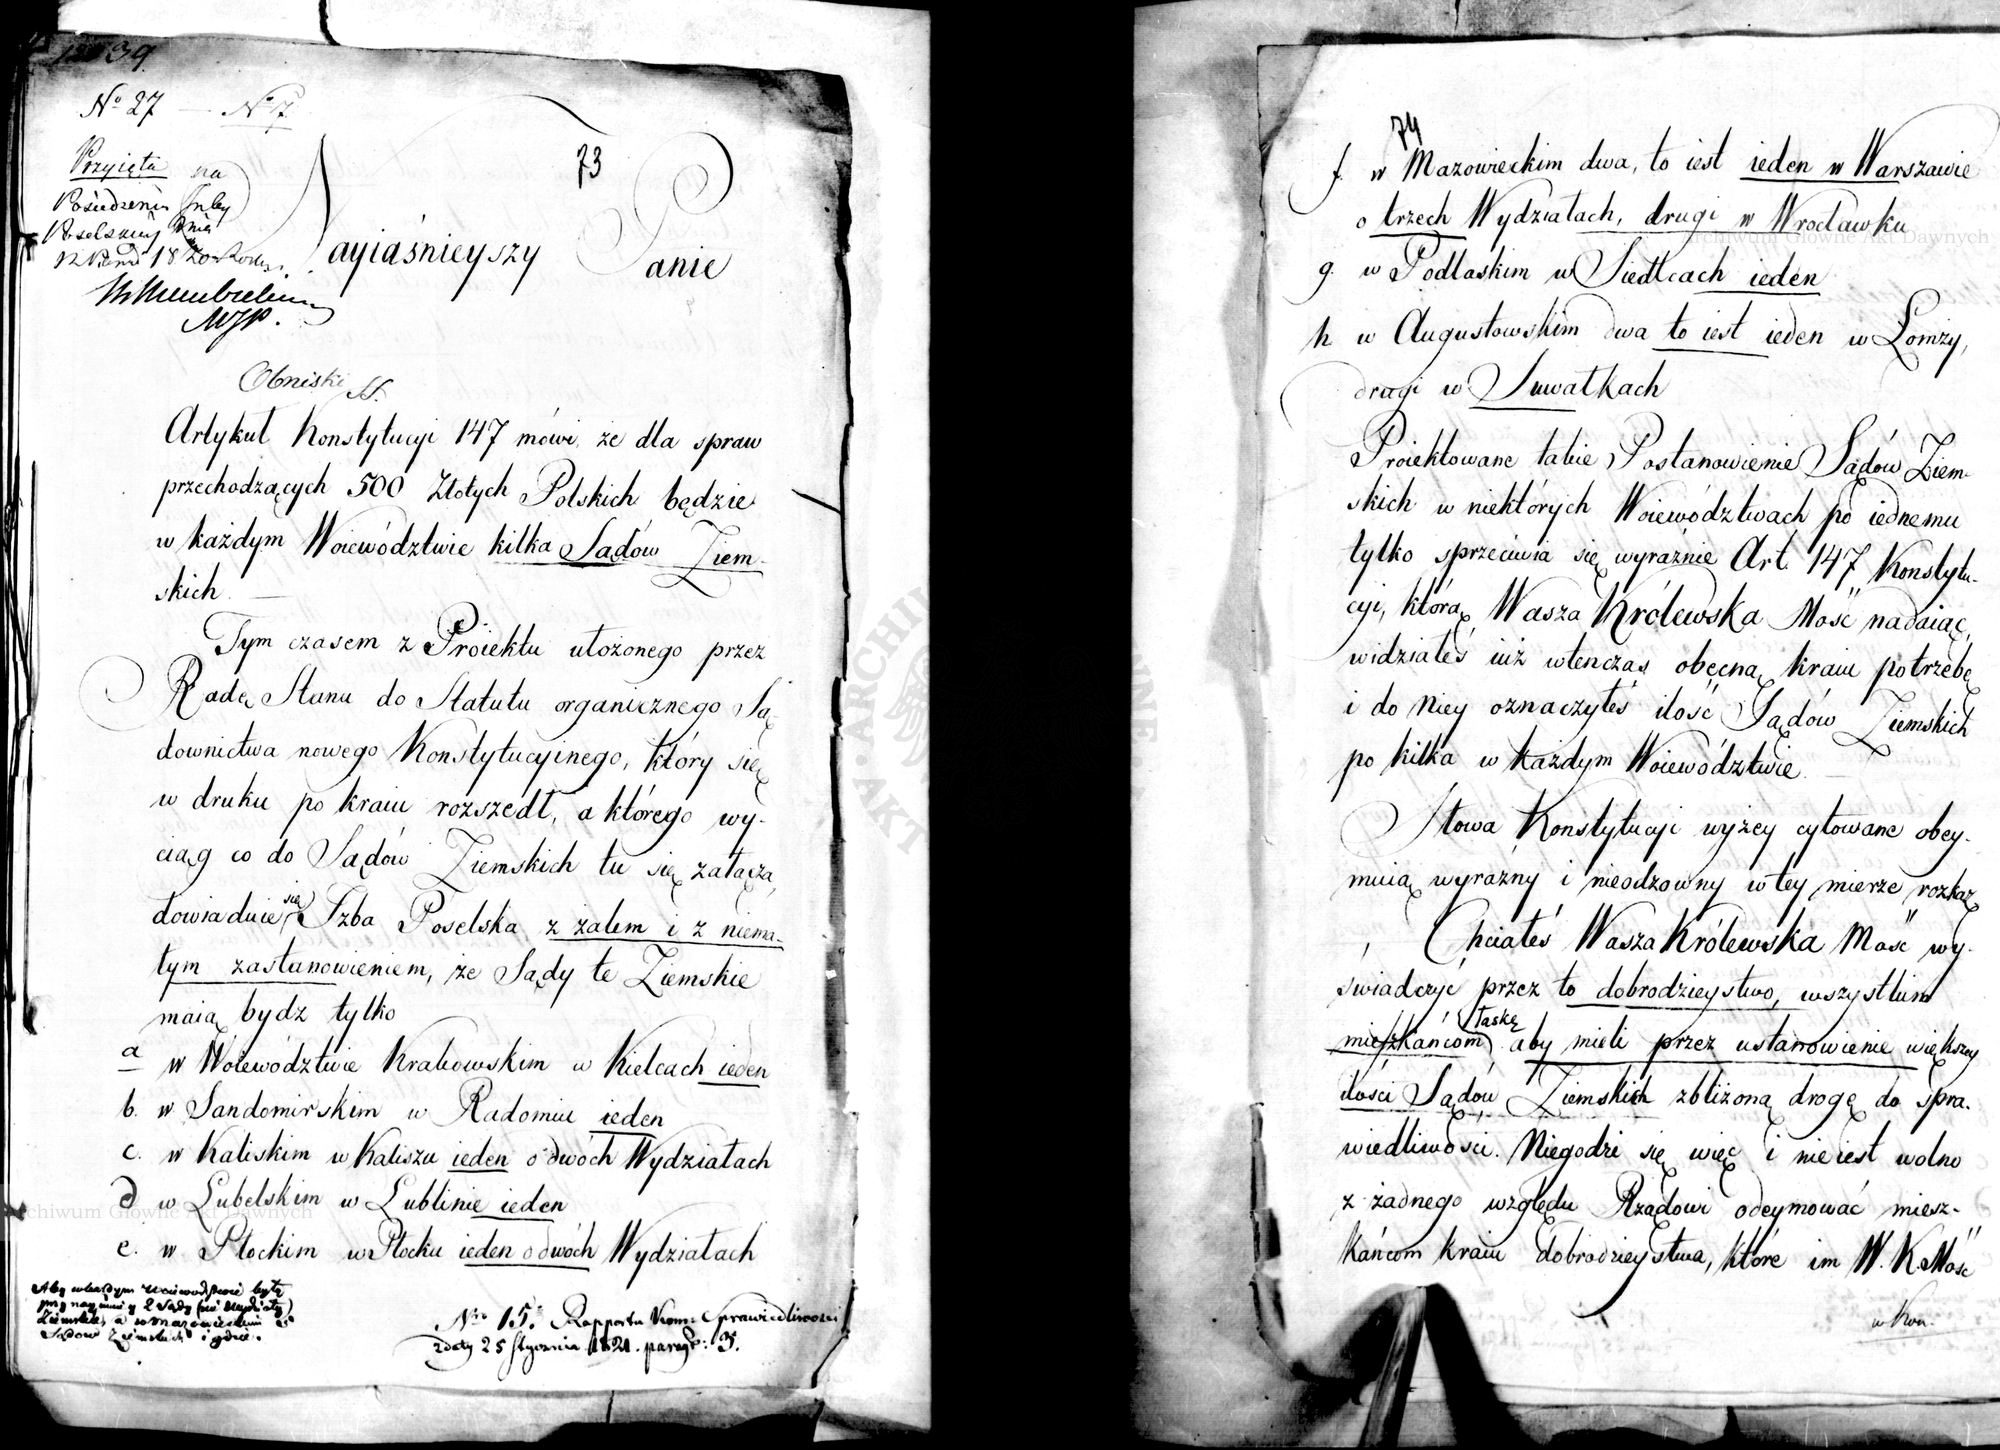 39
Nº 27 — Nº 17
73
Przyięta na
Posiedzeniu Izby
Poselskiey Dnia
1820 Roku
Nayiaśnieyszy Panie
Obniski
Artykuł Konstytucyi 147 mówi, że dla spraw
przechodzących 500 Złotych Polskich będzie
w każdym Woiewództwie kilka Sądów Ziem-
skich. —
Tym czasem z Proiektu ułożonego przez
Radę Stanu do Statutu organicznego Są
downictwa nowego Konstytucyinego, który się
w druku po kraiu rozszedł, a którego wy-
ciąg co do Sądów Ziemskich tu się załącza,
dowiaduie się Izba Poselska z żalem i z niema-
łym zastanowieniem, że Sądy te Ziemskie
maią bydz tylko
a w Woiewództwie Krakowskim w Kielcach ieden
b. w Sandomirskim w Radomiu ieden
c. w Kaliskim w Kaliszu ieden o dwóch Wydziałach
d w Lubelskim w Lublinie ieden
e. w Płockim w Płocku ieden o dwóch Wydziałach
Aby w każdym Woiewodztwie były
przynaymniey 2 Sądy (nie Wydziały)
Ziemskie, a w Mazowieckim
Sądow Ziemskich i gdzie.
Nro 15. Rapportu Kom: Sprawiedliwości
z daty 25 Stycznia 1821. paragr: 3.
74
f. w Mazowieckim dwa, to iest ieden w Warszawie
o trzech Wydziałach, drugi w Wrocławku
g. w Podlaskim w Siedlcach ieden
h. w Augustowskim dwa to iest ieden w Łomży,
drugi w Suwałkach
Proiektowane takie Postanowienie Sądów Ziem-
skich w niektórych Woiewództwach po iednemu
tylko sprzeciwia się wyraźnie Art. 147 Konstytu-
cyi, którą Wasza Królewska Mość nadaiąc,
widziałeś iuż wtenczas obecną kraiu potrzebę
i do niey oznaczyłeś ilość Sądów Ziemskich
po kilka w każdym Woiewództwie. —
Słowa Konstytucyi wyżey cytowane obey-
muią wyraźny i nieodzowny w tey mierze rozkaz
Chciałeś Wasza Królewska Mość wy-
świadczyć przez to dobrodzieystwo, wszystkim
mieszkańcom łaskę aby mieli przez ustanowienie większey
ilości Sądów Ziemskich zbliżoną drogę do spra-
wiedliwości. Niegodzi się więc i nie iest wolno
z żadnego względu Rządowi odeymować miesz-
kańcom kraiu dobrodzieystwa, które im W. K. Mość
w Kon.